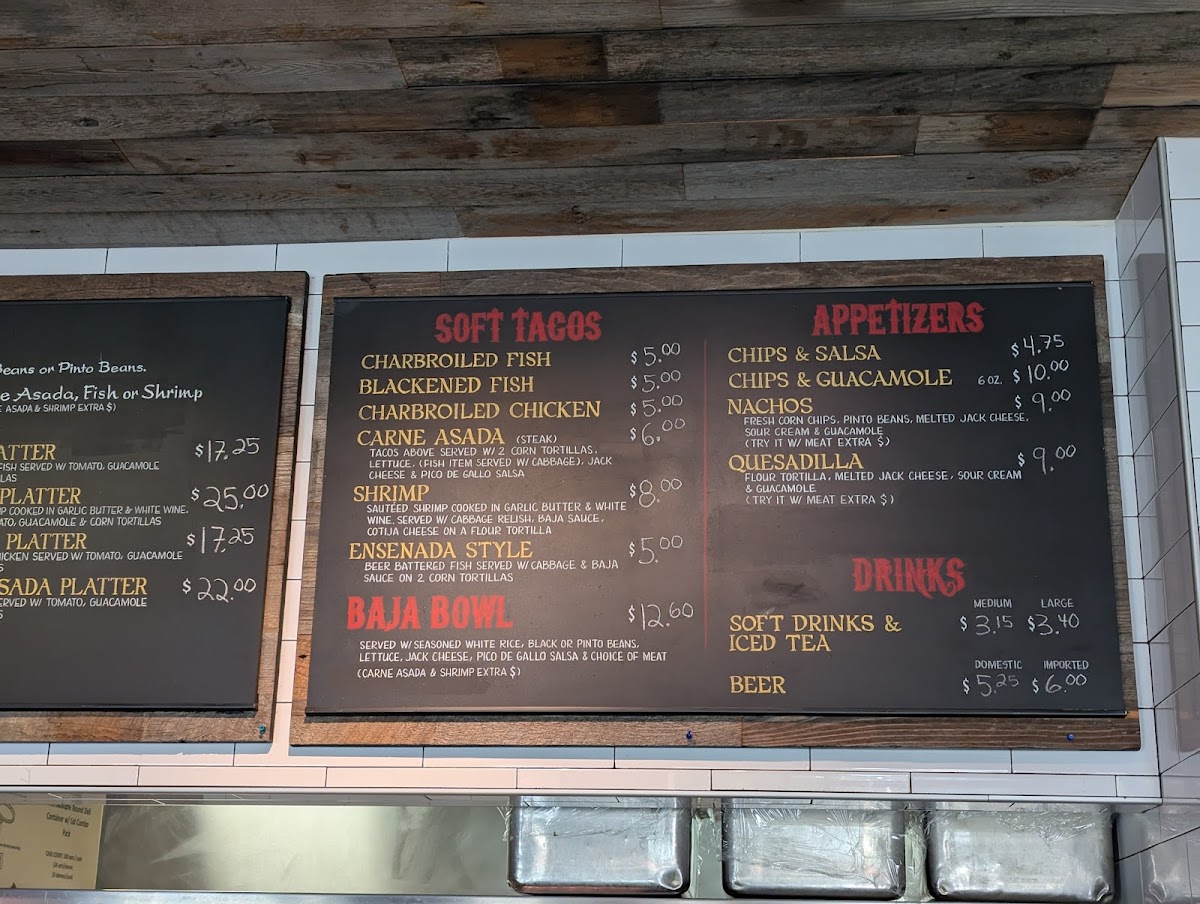 Beans or Pinto Beans.
Asada, Fish or Shrimp
ASADA & SHRIMP EXTRA $)
$17.25
FISH SERVED W/ TOMATO, GUACAMOLE
PLATTER $25.00
COOKED IN GARLIC BUTTER & WHITE WINE.
GUACAMOLE & CORN TORTILLAS
PLATTER $17.25
SERVED W/ TOMATO, GUACAMOLE
PLATTER $22.00
W/ TOMATO, GUACAMOLE
SOFT TACOS
CHARBROILED FISH $5.00
BLACKENED FISH $5.00
CHARBROILED CHICKEN $5.00
CARNE ASADA (STEAK) $6.00
TACOS ABOVE SERVED W/ 2 CORN TORTILLAS,
LETTUCE, (FISH ITEM SERVED W/ CABBAGE), JACK
CHEESE & PICO DE GALLO SALSA
SHRIMP $8.00
SAUTÉED SHRIMP COOKED IN GARLIC BUTTER & WHITE
WINE, SERVED W/ CABBAGE RELISH, BAJA SAUCE,
COTIJA CHEESE ON A FLOUR TORTILLA
ENSENADA STYLE $5.00
BEER BATTERED FISH SERVED W/ CABBAGE & BAJA
SAUCE ON 2 CORN TORTILLAS
BAJA BOWL $12.60
SERVED W/ SEASONED WHITE RICE, BLACK OR PINTO BEANS,
LETTUCE, JACK CHEESE, PICO DE GALLO SALSA & CHOICE OF MEAT
(CARNE ASADA & SHRIMP EXTRA $)
APPETIZERS
CHIPS & SALSA $4.75
CHIPS & GUACAMOLE 6 OZ. $10.00
NACHOS $9.00
FRESH CORN CHIPS, PINTO BEANS, MELTED JACK CHEESE,
SOUR CREAM & GUACAMOLE
(TRY IT W/ MEAT EXTRA $)
QUESADILLA $9.00
FLOUR TORTILLA, MELTED JACK CHEESE, SOUR CREAM
& GUACAMOLE
(TRY IT W/ MEAT EXTRA $)
DRINKS
MEDIUM LARGE
SOFT DRINKS & $3.15 $3.40
ICED TEA
DOMESTIC IMPORTED
BEER $5.25 $6.00
Round Deli
Container w/ Lid Combo
Pack